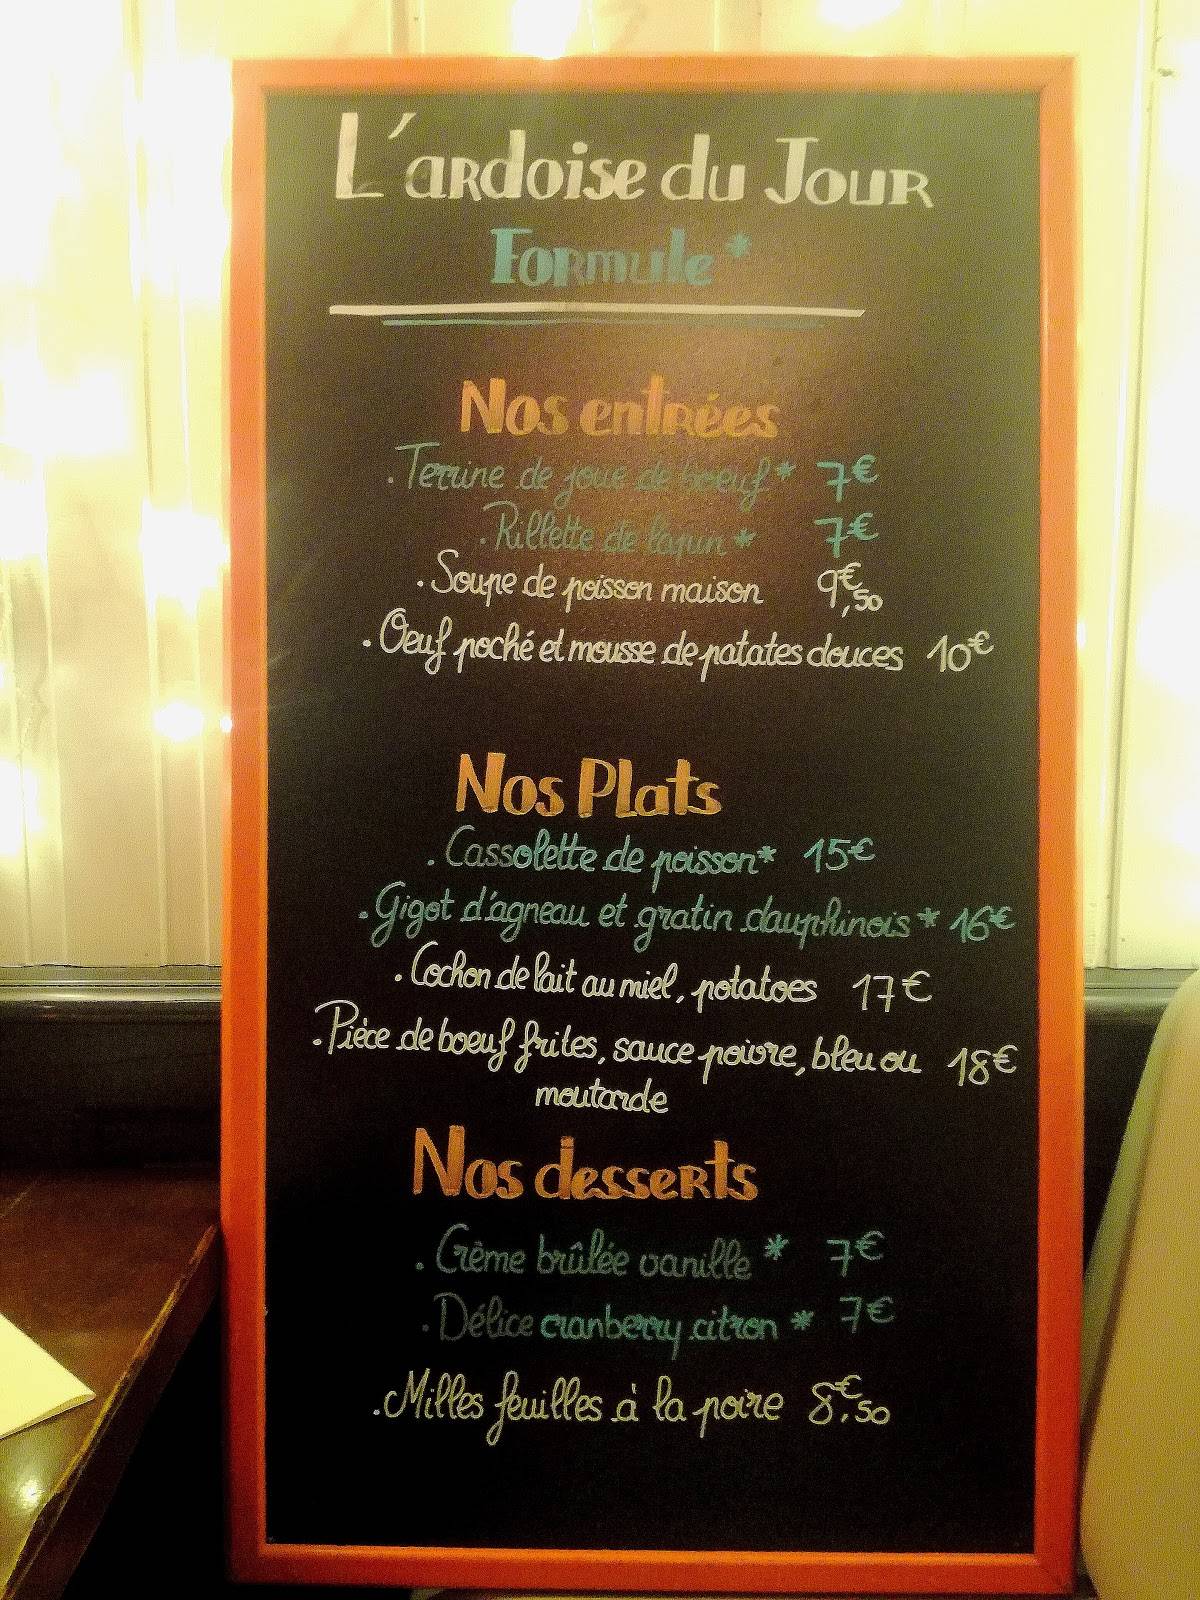 L'ardoise du Jour
Formule*
Nos entrées
. Terrine de joue de boeuf * 7€
. Rillette de lapin * 7€
. Soupe de poisson maison 9€,50
. Oeuf poché et mousse de patates douces 10€
Nos Plats
. Cassolette de poisson* 15€
. Gigot d'agneau et gratin dauphinois * 16€
. Cochon de lait au miel, potatoes 17€
. Pièce de boeuf frites, sauce poivre, bleu ou 18€
moutarde
Nos desserts
. Crème brûlée vanille * 7€
. Délice cranberry citron * 7€
. Milles feuilles à la poire 8€,50